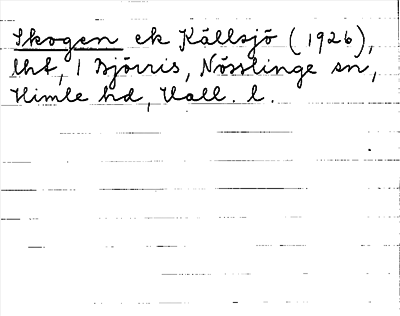 Skogen ek Källsjö (1926),
lht, 1 Björris, Nösslinge sn,
Himle hd, Hall. l.